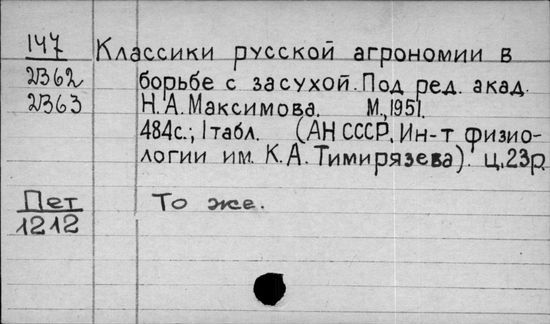 147 Классики русской агрономии в
2362 борьбе с засухой. Под ред. акад.
2363 Н.А. Максимова. М., 1951.
484с.; 1 табл. (АН СССР. Ин-т физио-
логии им. К.А. Тимирязева). ц. 23р.
Пет То же.
1212